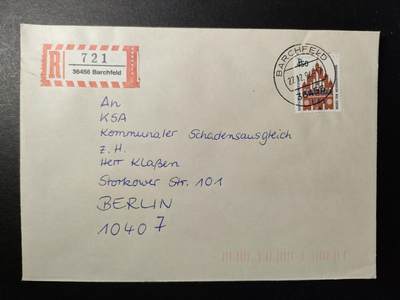 R
721
36456 Barchfeld
BARCHFELD
36456
An
KSA
Kommunaler Schadensausgleich
z. H.
Herr Klaßen
Storkower Str. 101
BERLIN
10407